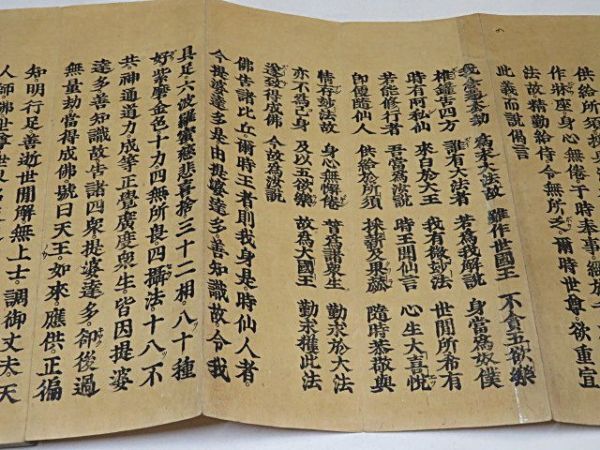 供給所須
作牀座身心無倦于時奉事經於千
法故精勤給侍令無所乏爾時世尊欲重宣
此義而說偈言
我念過去劫 為求大法故 雖作世國王 不貪五欲樂
椎鐘告四方 誰有大法者 若為我解說 身當為奴僕
時有阿私仙 來白於大王 我有微妙法 世間所希有
若能修行者 吾當為汝說 時王聞仙言 心生大喜悅
即便隨仙人 供給於所須 採薪及果蓏 隨時恭敬與
情存妙法故 身心無懈倦 普為諸衆生 勤求於大法
亦不為己身 及以五欲樂 故為大國王 勤求獲此法
遂致得成佛 今故為汝說
佛告諸比丘爾時王者則我身是時仙人者
今提婆達多是由提婆達多善知識故令我
具足六波羅蜜慈悲喜捨三十二相八十種
好紫磨金色十力四無所畏四攝法十八不
共神通道力成等正覺廣度衆生皆因提婆
達多善知識故告諸四衆提婆達多却後過
無量劫當得成佛號曰天王如來應供正徧
知明行足善逝世間解無上士調御丈夫天
人師佛世尊世界名